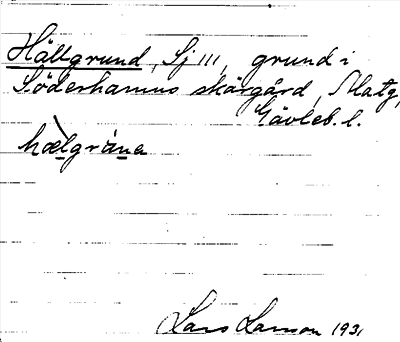 Hällgrund, Sj III, grund i
Söderhamns skärgård, Matg,
Gävleb. l.
hælgru̇na
Lars Larson 1931